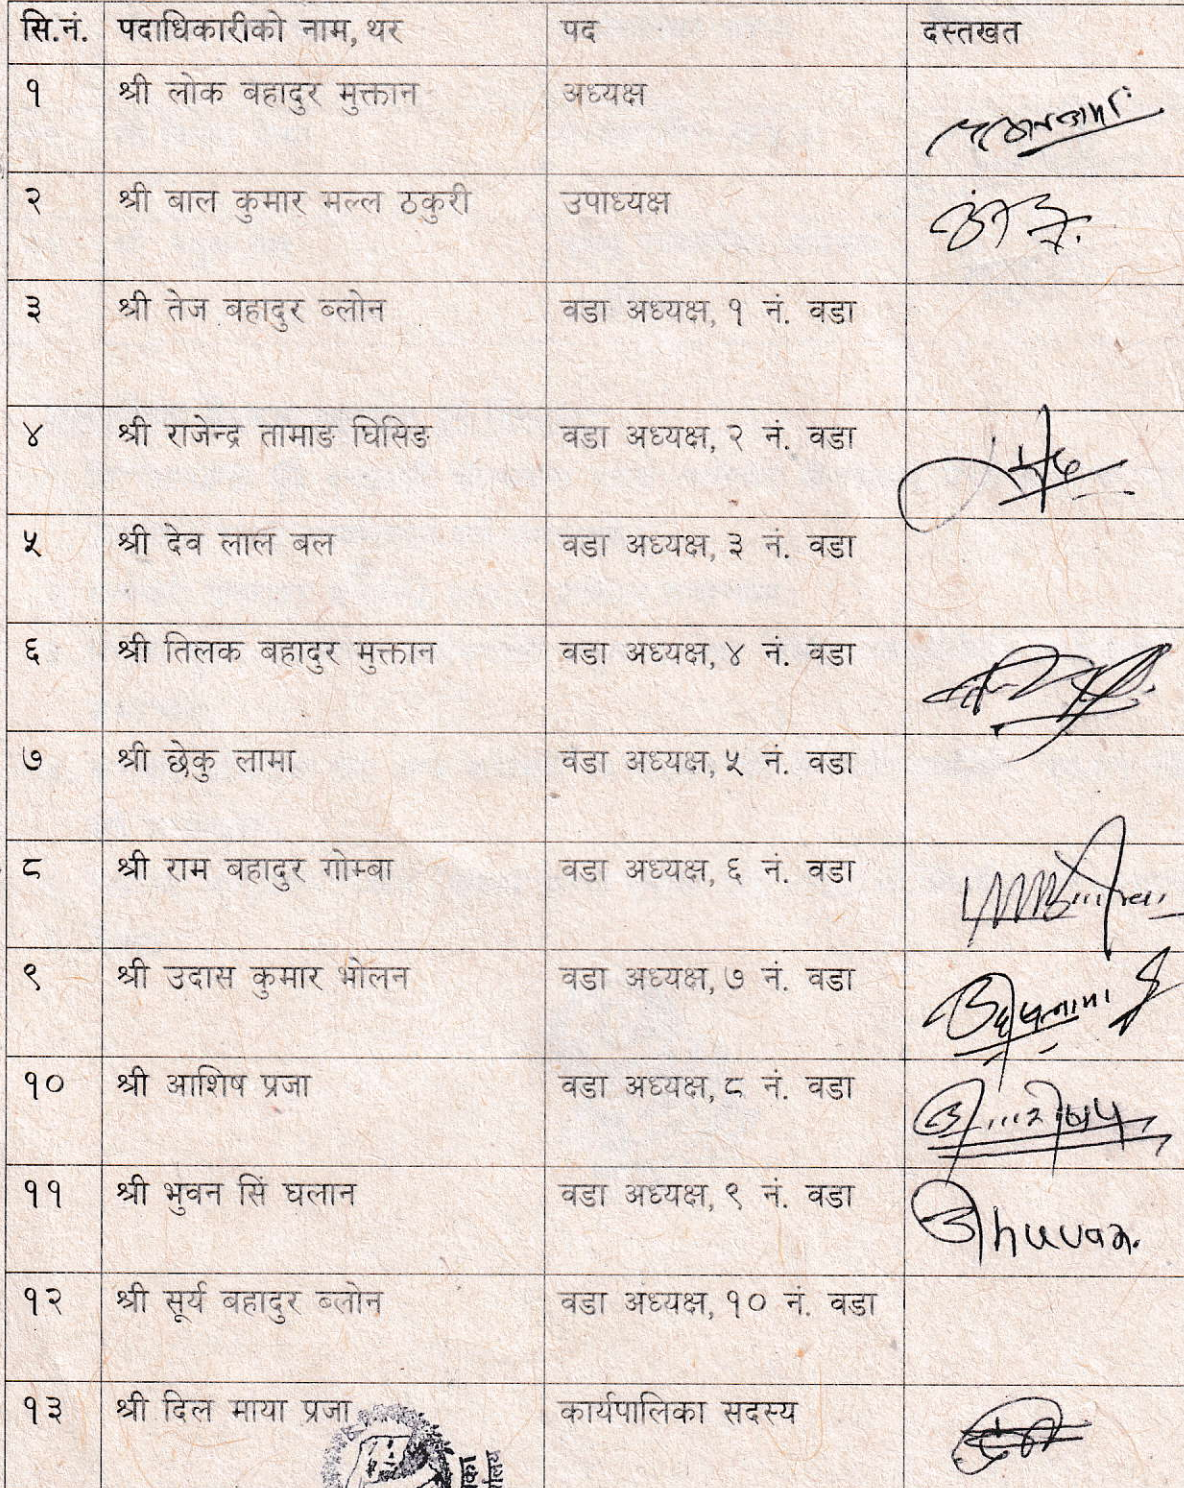 सि.नं. पदाधिकारीको नाम, थर पद दस्तखत
१ श्री लोक बहादुर मुक्तान अध्यक्ष
२ श्री बाल कुमार मल्ल ठकुरी उपाध्यक्ष
३ श्री तेज बहादुर ब्लोन वडा अध्यक्ष, १ नं. वडा
४ श्री राजेन्द्र तामाङ घिसिङ वडा अध्यक्ष, २ नं. वडा
५ श्री देव लाल बल वडा अध्यक्ष, ३ नं. वडा
६ श्री तिलक बहादुर मुक्तान वडा अध्यक्ष, ४ नं. वडा
७ श्री छेकु लामा वडा अध्यक्ष, ५ नं. वडा
८ श्री राम बहादुर गोम्बा वडा अध्यक्ष, ६ नं. वडा
९ श्री उदास कुमार भोलन वडा अध्यक्ष, ७ नं. वडा
१० श्री आशिष प्रजा वडा अध्यक्ष, ८ नं. वडा
११ श्री भुवन सिं घलान वडा अध्यक्ष, ९ नं. वडा Bhuvan.
१२ श्री सूर्य बहादुर ब्लोन वडा अध्यक्ष, १० नं. वडा
१३ श्री दिल माया प्रजा कार्यपालिका सदस्य